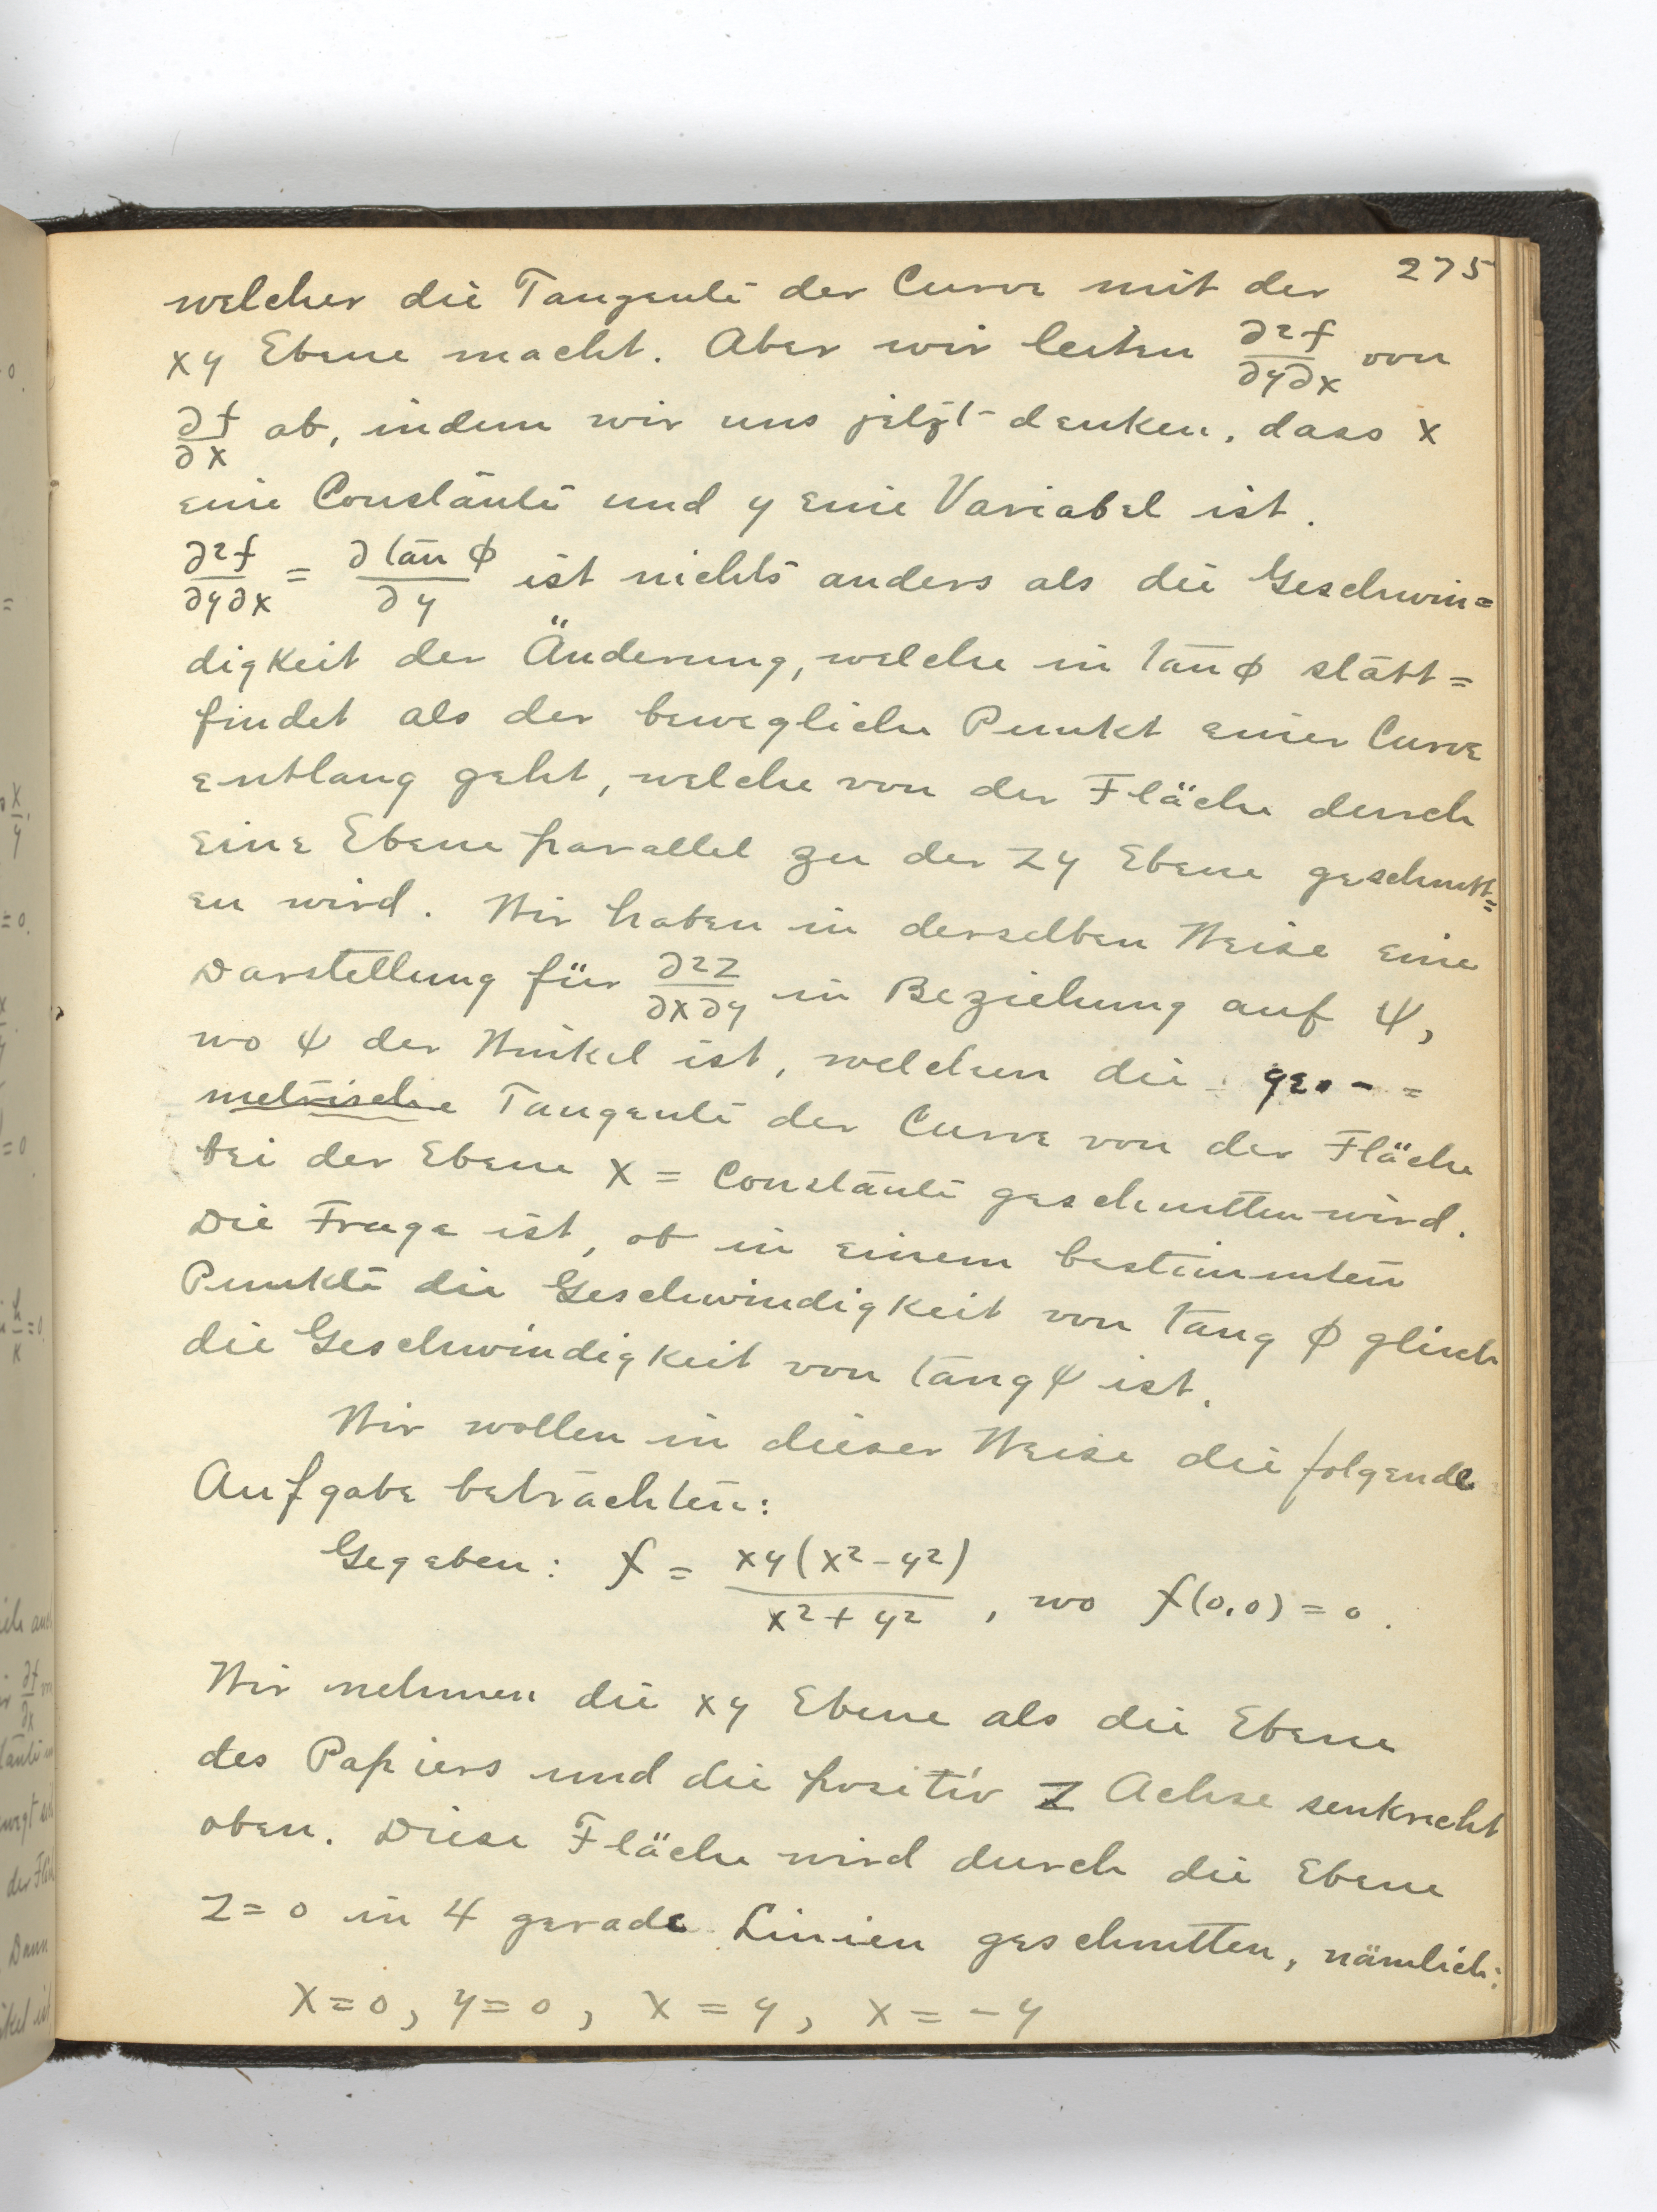 275
welcher die Tangente der Curve mit der
xy Ebene macht. Aber wir leiten ∂²f/∂y∂x von
∂f/∂x ab, indem wir uns jetzt denken, dass x
eine Constante und y eine Variabel ist.
∂²f/∂y∂x = ∂ tan φ/∂y ist nichts anders als die Geschwin=
digkeit der Änderung, welche in tan φ statt=
findet als der bewegliche Punkt einer Curve
entlang geht, welche von der Fläche durch
eine Ebene parallel zu der zy Ebene geschnitt=
en wird. Wir haben in derselben Weise eine
Darstellung für ∂²z/∂x∂y in Beziehung auf ψ,
wo ψ der Winkel ist, welchen die geo- =
metrische Tangente der Curve von der Fläche
bei der Ebene x = Constante geschnitten wird.
Die Frage ist, ob in einem bestimmten
Punkte die Geschwindigkeit von tang φ gleich
die Geschwindigkeit von tang ψ ist.
Wir wollen in dieser Weise die folgende
Aufgabe betrachten:
Gegeben: f = xy(x²-y²)/x²+y², wo f(0,0) = 0.
Wir nehmen die xy Ebene als die Ebene
des Papiers und die positiv z Achse senkrecht
oben. Diese Fläche wird durch die Ebene
z=0 in 4 gerade Linien geschnitten, nämlich:
x=0, y=0, x = y, x = -y